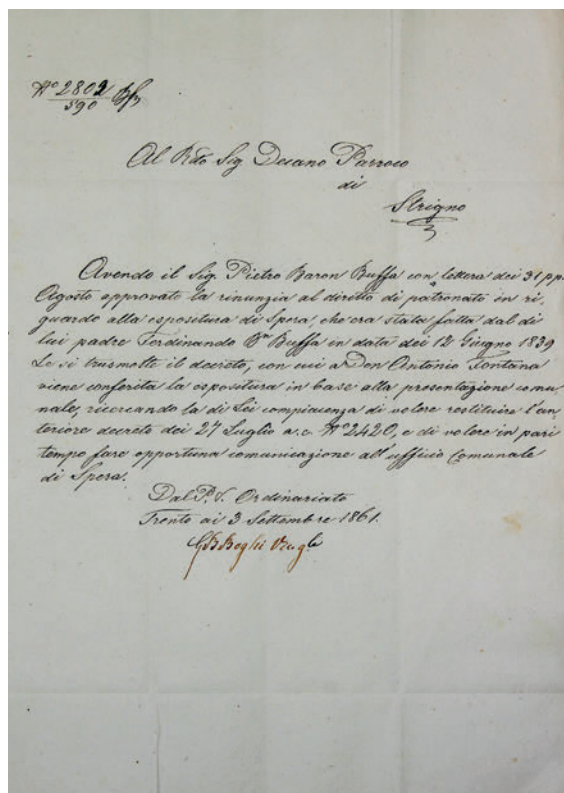 Nº 2802
590
Al Rdo Sig Decano Parroco
di
Strigno
Avendo il Sig. Pietro Baron Buffa con lettera dei 31 p.p.
Agosto approvato la rinunzia al diritto di patronato in ri„
guardo alla espositura di Spera che era stata fatta dal di
lui padre Ferdinando Bn Buffa in data dei 12 Giugno 1839
Le si trasmette il decreto, con cui a Don Antonio Fontana
viene conferita la espositura in base alla presentazione comu„
nale, ricercando la di Lei compiacenza di volere restituire l'an„
teriore decreto dei 27 Luglio a.c. Nº 2420, e di volere in pari
tempo fare opportuna comunicazione all'ufficio Comunale
di Spera.
Dal P. V. Ordinariato
Trento ai 3 Settembre 1861.